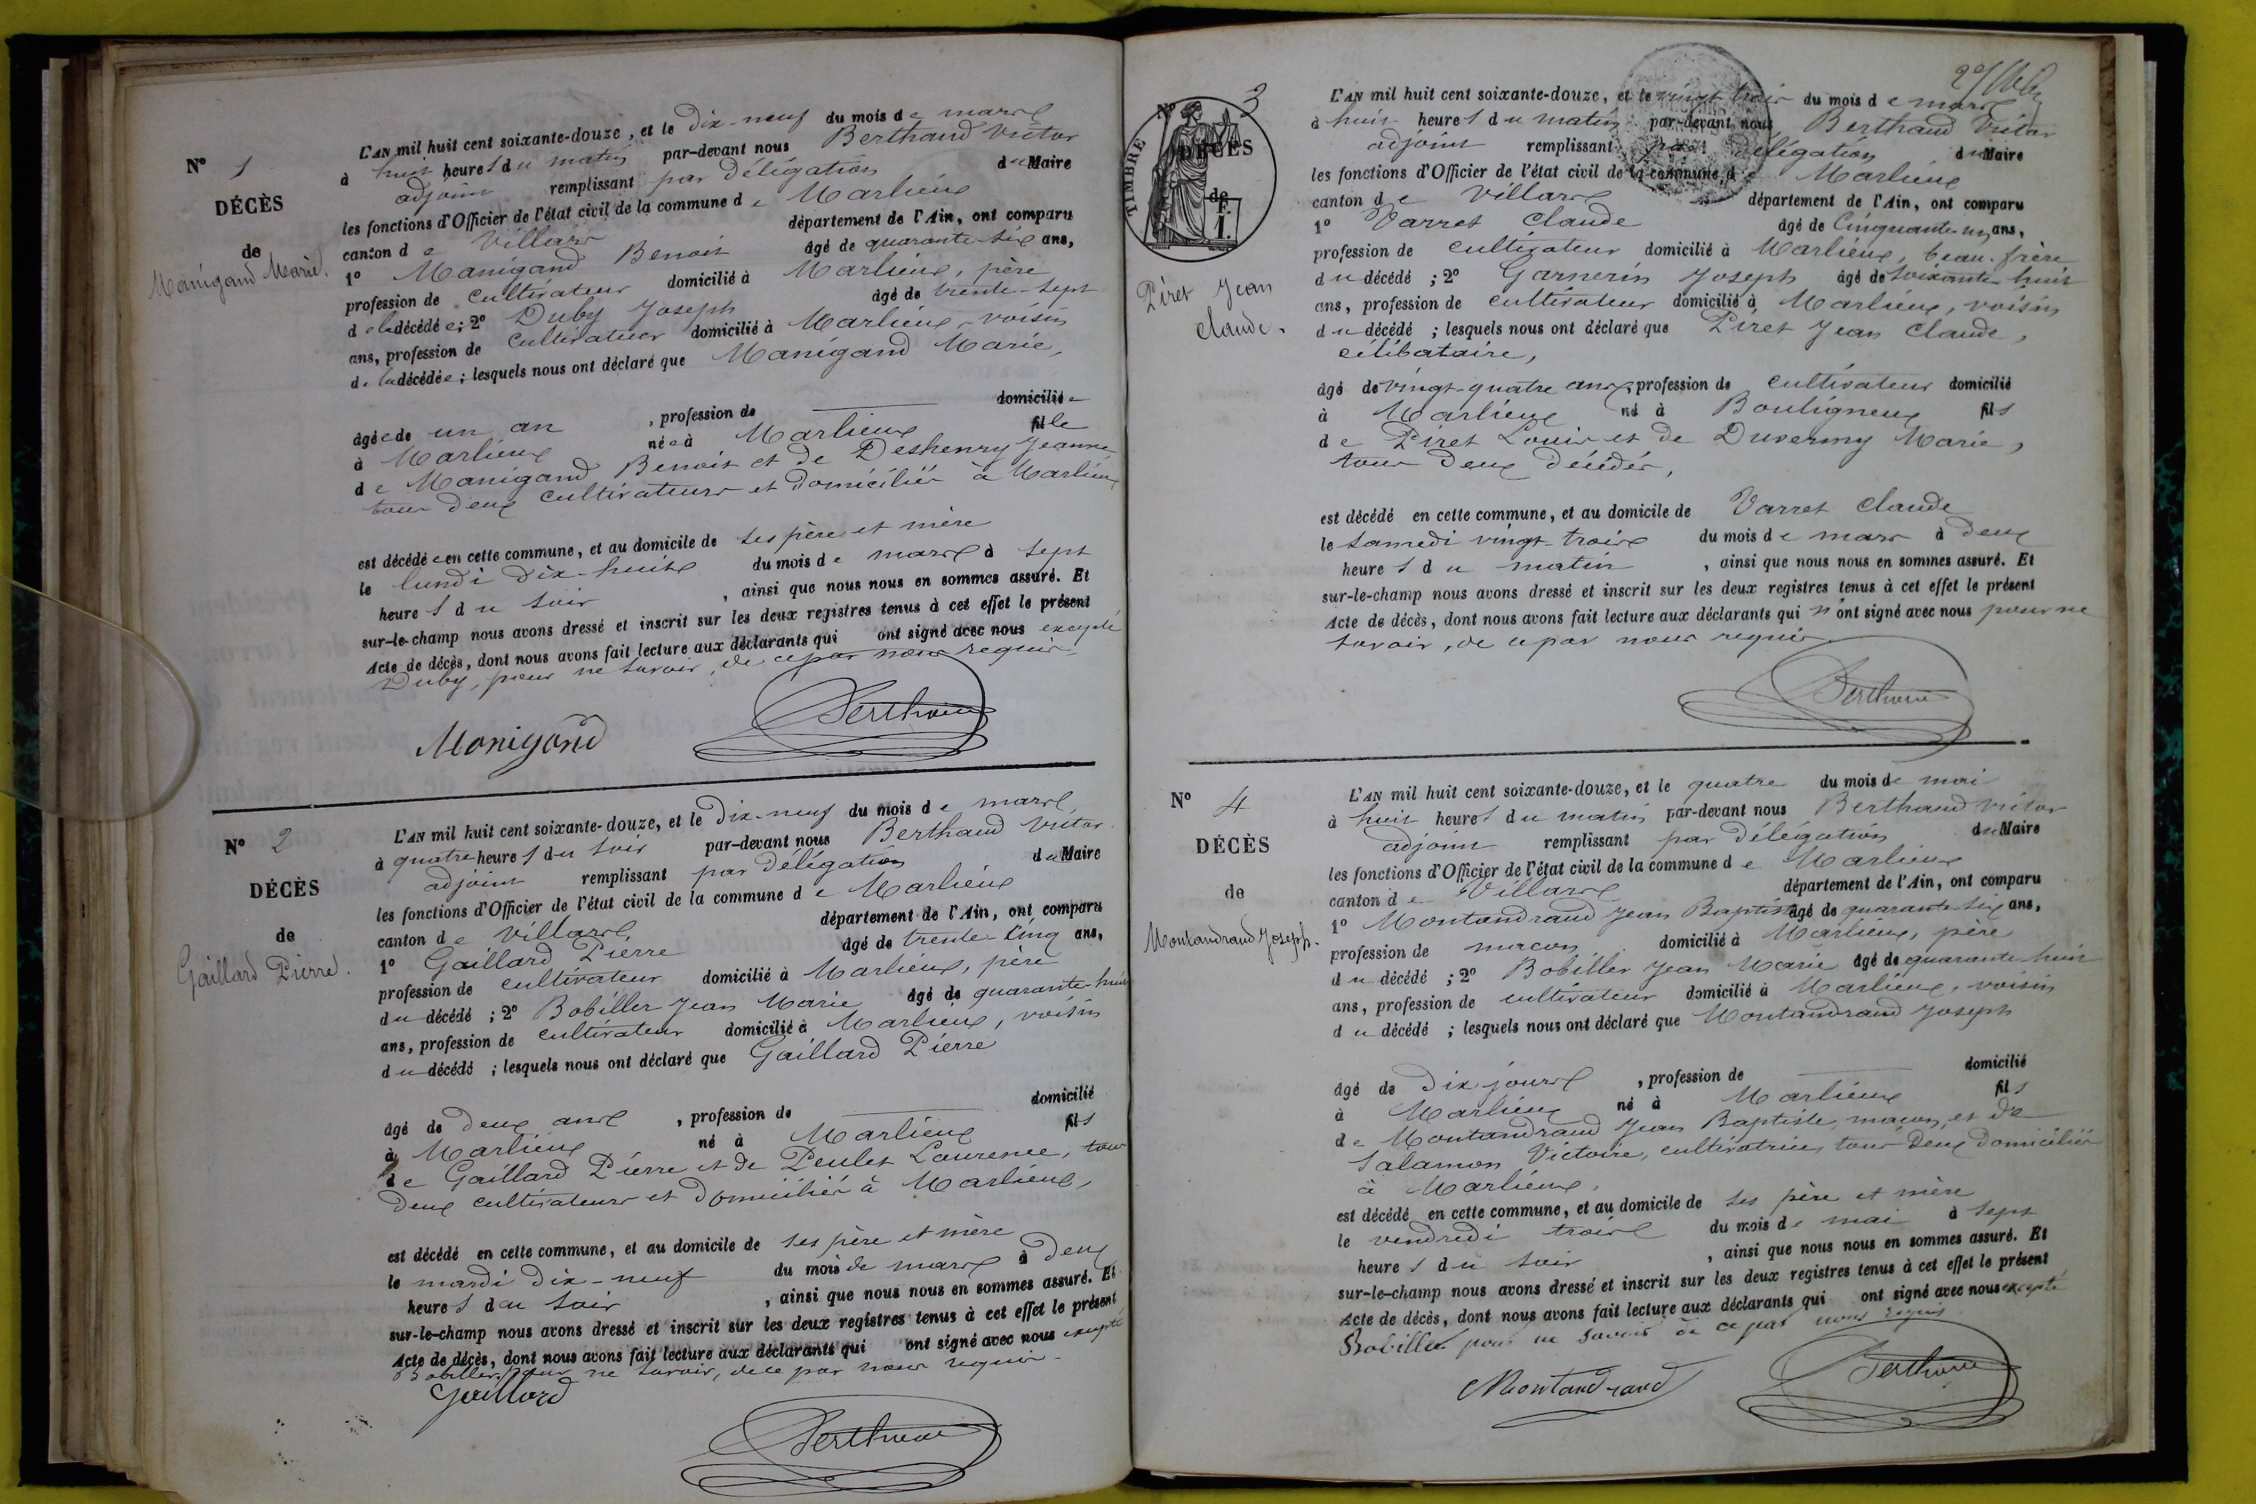 N° 1
DÉCÈS
de
Manigand Marie.
L'AN mil huit cent soixante-douze, et le dix-neuf du mois de mars
à huit heures du matin par-devant nous Berthaud Victor
adjoint remplissant par délégation du Maire
les fonctions d'Officier de l'état civil de la commune de Marlieux
canton de Villars département de l'Ain, ont comparu
1° Manigand Benoit âgé de quarante-six ans,
profession de cultivateur domicilié à Marlieux, père
de la décédée; 2° Duby Joseph âgé de trente-sept
ans, profession de cultivateur domicilié à Marlieux, voisin
de la décédée; lesquels nous ont déclaré que Manigand Marie,
âgée de un an, profession de domiciliée
à Marlieux née à Marlieux fille
de Manigand Benoit et de Deshenry Jeanne,
tous deux cultivateurs et domiciliés à Marlieux
est décédée en cette commune, et au domicile de ses père et mère
le lundi dix-huit du mois de mars à sept
heures du soir, ainsi que nous nous en sommes assuré. Et
sur-le-champ nous avons dressé et inscrit sur les deux registres tenus à cet effet le présent
Acte de décès, dont nous avons fait lecture aux déclarants qui ont signé avec nous excepté
Duby, pour ne savoir, de ce par nous requis
Manigand Berthaud
N° 2
DÉCÈS
de
Gaillard Pierre.
L'AN mil huit cent soixante-douze, et le dix-neuf du mois de mars
à quatre heures du soir par-devant nous Berthaud Victor
adjoint remplissant par délégation du Maire
les fonctions d'Officier de l'état civil de la commune de Marlieux
canton de Villars département de l'Ain, ont comparu
1° Gaillard Pierre âgé de trente-cinq ans,
profession de cultivateur domicilié à Marlieux, père
du décédé; 2° Bobiller Jean Marie âgé de quarante-huit
ans, profession de cultivateur domicilié à Marlieux, voisin
du décédé; lesquels nous ont déclaré que Gaillard Pierre
âgé de deux ans, profession de domicilié
à Marlieux né à Marlieux fils
de Gaillard Pierre et de Peulet Laurence, tous
deux cultivateurs et domiciliés à Marlieux,
est décédé en cette commune, et au domicile de ses père et mère
le mardi dix-neuf du mois de mars à deux
heures du soir, ainsi que nous nous en sommes assuré. Et
sur-le-champ nous avons dressé et inscrit sur les deux registres tenus à cet effet le présent
Acte de décès, dont nous avons fait lecture aux déclarants qui ont signé avec nous excepté
Bobiller, pour ne savoir, de ce par nous requis
Gaillard
Berthaud
N° 3
TIMBRE
DÉCÈS
de
Piret Jean
Claude.
L'AN mil huit cent soixante-douze, et le vingt trois du mois de mars
à huit heures du matin par-devant nous Berthaud Victor
adjoint remplissant par délégation du Maire
les fonctions d'Officier de l'état civil de la commune de Marlieux
canton de Villars département de l'Ain, ont comparu
1° Varret Claude âgé de Cinquante-un ans,
profession de cultivateur domicilié à Marlieux, beau-frère
du décédé; 2° Garnerin Joseph âgé de soixante-huit
ans, profession de cultivateur domicilié à Marlieux, voisin
du décédé; lesquels nous ont déclaré que Piret Jean Claude,
célibataire,
âgé de vingt-quatre ans, profession de cultivateur domicilié
à Marlieux né à Bouligneux fils
de Piret Louis et de Duvermy Marie,
tous deux décédés,
est décédé en cette commune, et au domicile de Varret Claude
le samedi vingt-trois du mois de mars à deux
heures du matin, ainsi que nous nous en sommes assuré. Et
sur-le-champ nous avons dressé et inscrit sur les deux registres tenus à cet effet le présent
Acte de décès, dont nous avons fait lecture aux déclarants qui n'ont signé avec nous pour ne
savoir, de ce par nous requis
Berthaud
N° 4
DÉCÈS
de
Montandraud Joseph.
L'AN mil huit cent soixante-douze, et le quatre du mois de mai
à huit heures du matin par-devant nous Berthaud Victor
adjoint remplissant par délégation du Maire
les fonctions d'Officier de l'état civil de la commune de Marlieux
canton de Villars département de l'Ain, ont comparu
1° Montandraud Jean Baptiste âgé de quarante-six ans,
profession de maçon domicilié à Marlieux, père
du décédé; 2° Bobiller Jean Marie âgé de quarante-huit
ans, profession de cultivateur domicilié à Marlieux, voisin
du décédé; lesquels nous ont déclaré que Montandraud Joseph
âgé de dix jours, profession de domicilié
à Marlieux né à Marlieux fils
de Montandraud Jean Baptiste, maçon, et de
Salamon Victoire, cultivatrice, tous deux domiciliés
à Marlieux,
est décédé en cette commune, et au domicile de ses père et mère
le vendredi trois du mois de mai à sept
heures du soir, ainsi que nous nous en sommes assuré. Et
sur-le-champ nous avons dressé et inscrit sur les deux registres tenus à cet effet le présent
Acte de décès, dont nous avons fait lecture aux déclarants qui ont signé avec nous excepté
Bobiller pour ne savoir de ce par nous requis
Montandraud Berthaud